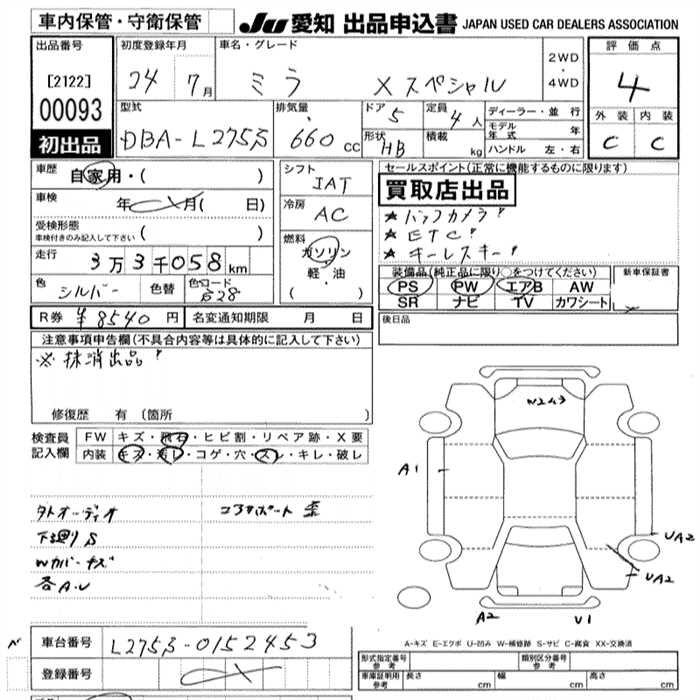 車内保管・守衛保管
JU 愛知 出品申込書 JAPAN USED CAR DEALERS ASSOCIATION
出品番号
[2122]
00093
初出品
初度登録年月
24 7月
車名・グレード
ミラ Xスペシャル
2WD
・
4WD
評価点
4
外装 内装
C C
型式
DBA-L275S
排気量
660 cc
ドア 5
定員 4人
形状 HB
積載 kg
ディーラー・並行
モデル年式 年
ハンドル 左・右
車歴
自家用・( )
車検
年 月( 日)
受検形態
車検付きのみ記入して下さい ( )
走行
3万3千058km
色 シルバー 色替 色コード S28
シフト
IAT
冷房
AC
燃料
ガソリン
軽・油
( )
セールスポイント(正常に機能するものに限ります)
買取店出品
★バックカメラ!
★ETC!
★キーレスキー!
装備品(純正品に限り○をつけてください)
PS PW エアB AW
SR ナビ TV カワシート
新車保証書
R券 ¥8540円 名変通知期限 月 日
後日品
注意事項申告欄(不具合内容等は具体的に記入して下さい)
※抹消出品!
修復歴 有(箇所 )
検査員記入欄
FW キズ・飛石・ヒビ割・リペア跡・X要
内装 キズ・汚レ・コゲ・穴・スレ・キレ・破レ
外オーディオ
コアサポート歪
下廻りS
Wカバーキズ
各A・U
W2 43
A1
UA2
UA2
A2
U1
車台番号 L275S-0152453
登録番号
A-キズ E-エクボ U-凹み W-補修跡 S-サビ C-腐食 XX-交換済
形式指定番号参考
類別区分番号参考
車庫証明用参考 長さ cm 幅 cm 高さ cm